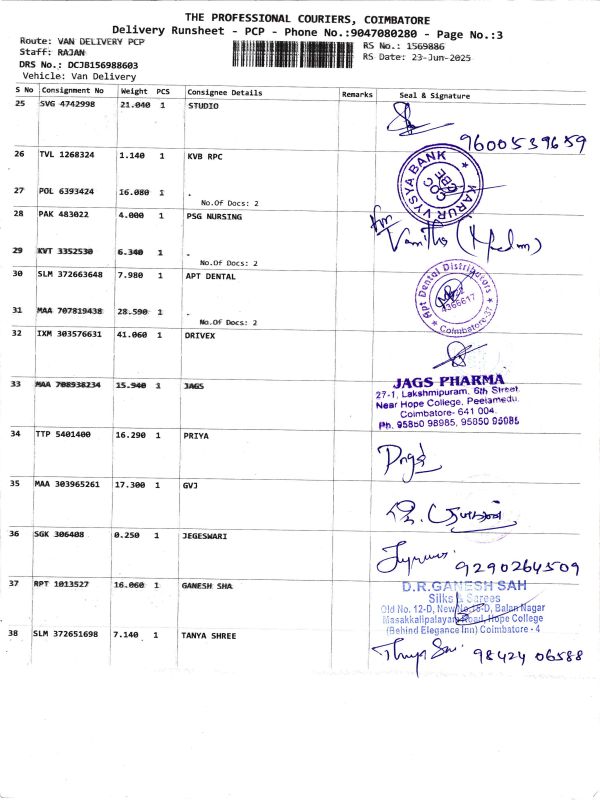 THE PROFESSIONAL COURIERS, COIMBATORE
Delivery Runsheet - PCP - Phone No.:9047080280 - Page No.:3
Route: VAN DELIVERY PCP
Staff: RAJAN
DRS No.: DCJB156988603
Vehicle: Van Delivery
RS No.: 1569886
RS Date: 23-Jun-2025
S No Consignment No Weight PCS Consignee Details Remarks Seal & Signature
25 SVG 4742998 21.040 1 STUDIO
9600539659
26 TVL 1268324 1.140 1 KVB RPC
KARUR VYSYA BANK
27 POL 6393424 16.080 1 .
No.Of Docs: 2
28 PAK 483022 4.000 1 PSG NURSING
for
29 KVT 3352530 6.340 1 .
No.Of Docs: 2
30 SLM 372663648 7.980 1 APT DENTAL
Apt Dental Distributors
4366617
Coimbatore-37
31 MAA 707819438 28.590 1 .
No.Of Docs: 2
32 IXM 303576631 41.060 1 DRIVEX
33 MAA 708938234 15.940 1 JAGS
JAGS PHARMA
27-1, Lakshmipuram, 6th Street.
Near Hope College, Peelamedu.
Coimbatore- 641 004.
Ph. 95850 98985, 95850 95085
34 TTP 5401400 16.290 1 PRIYA
35 MAA 303965261 17.300 1 GVJ
36 SGK 306408 0.250 1 JEGESWARI
9290264509
37 RPT 1013527 16.060 1 GANESH SHA
D.R.GANESH SAH
Silks & Sarees
Old No. 12-D, New No.18-D, Balan Nagar
Masakkalipalayam Road, Hope College
(Behind Elegance Inn) Coimbatore - 4
38 SLM 372651698 7.140 1 TANYA SHREE
98424 06588